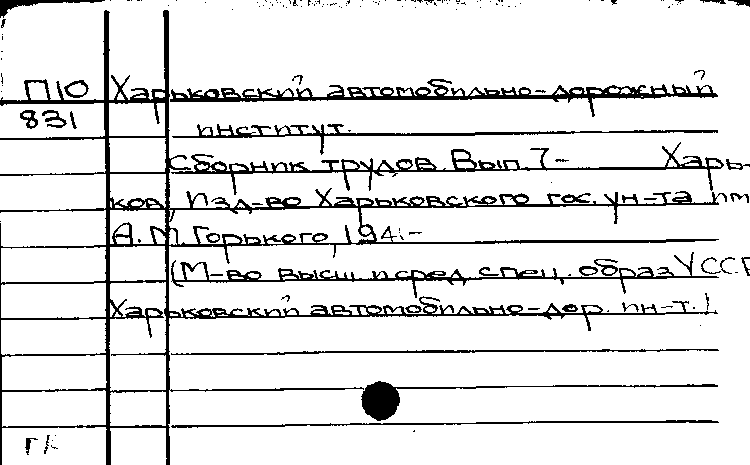 П10 Харьковский автомобильно-дорожный
831
институт.
Сборник трудов. Вып. 7- Харь-
ков, Изд-во Харьковского гос. ун-та им
А. М. Горького, 194-
(М-во высш. и сред. спец. образ УССР
Харьковский автомобильно-дор. ин-т.)
ГК